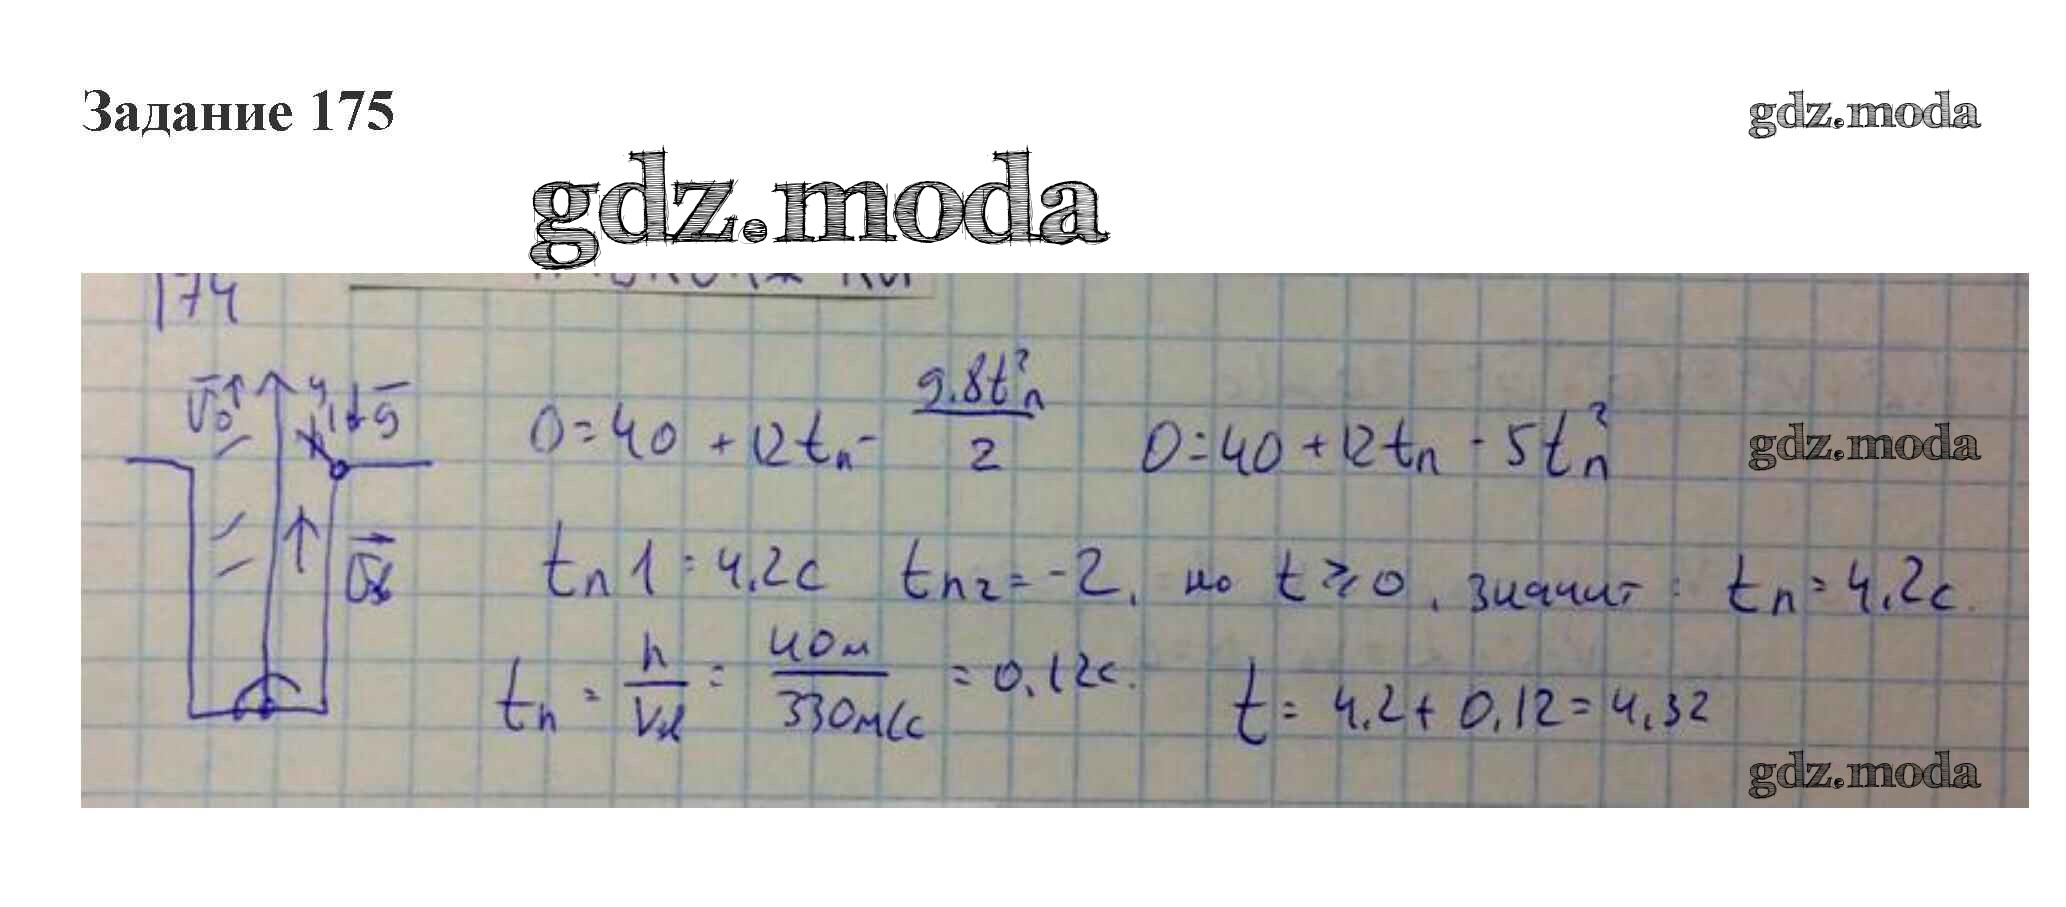 Задание 175
gdz.moda
gdz.moda
174
V₀ y g
0=40+12tп- 9.8tп²/2 0=40+12tп-5tп²
gdz.moda
tп1=4.2с tп2=-2, но t≥0, значит: tп=4,2с.
tп = h/Vзв = 40м/330м/с = 0,12с. t= 4,2+0,12=4,32
gdz.moda